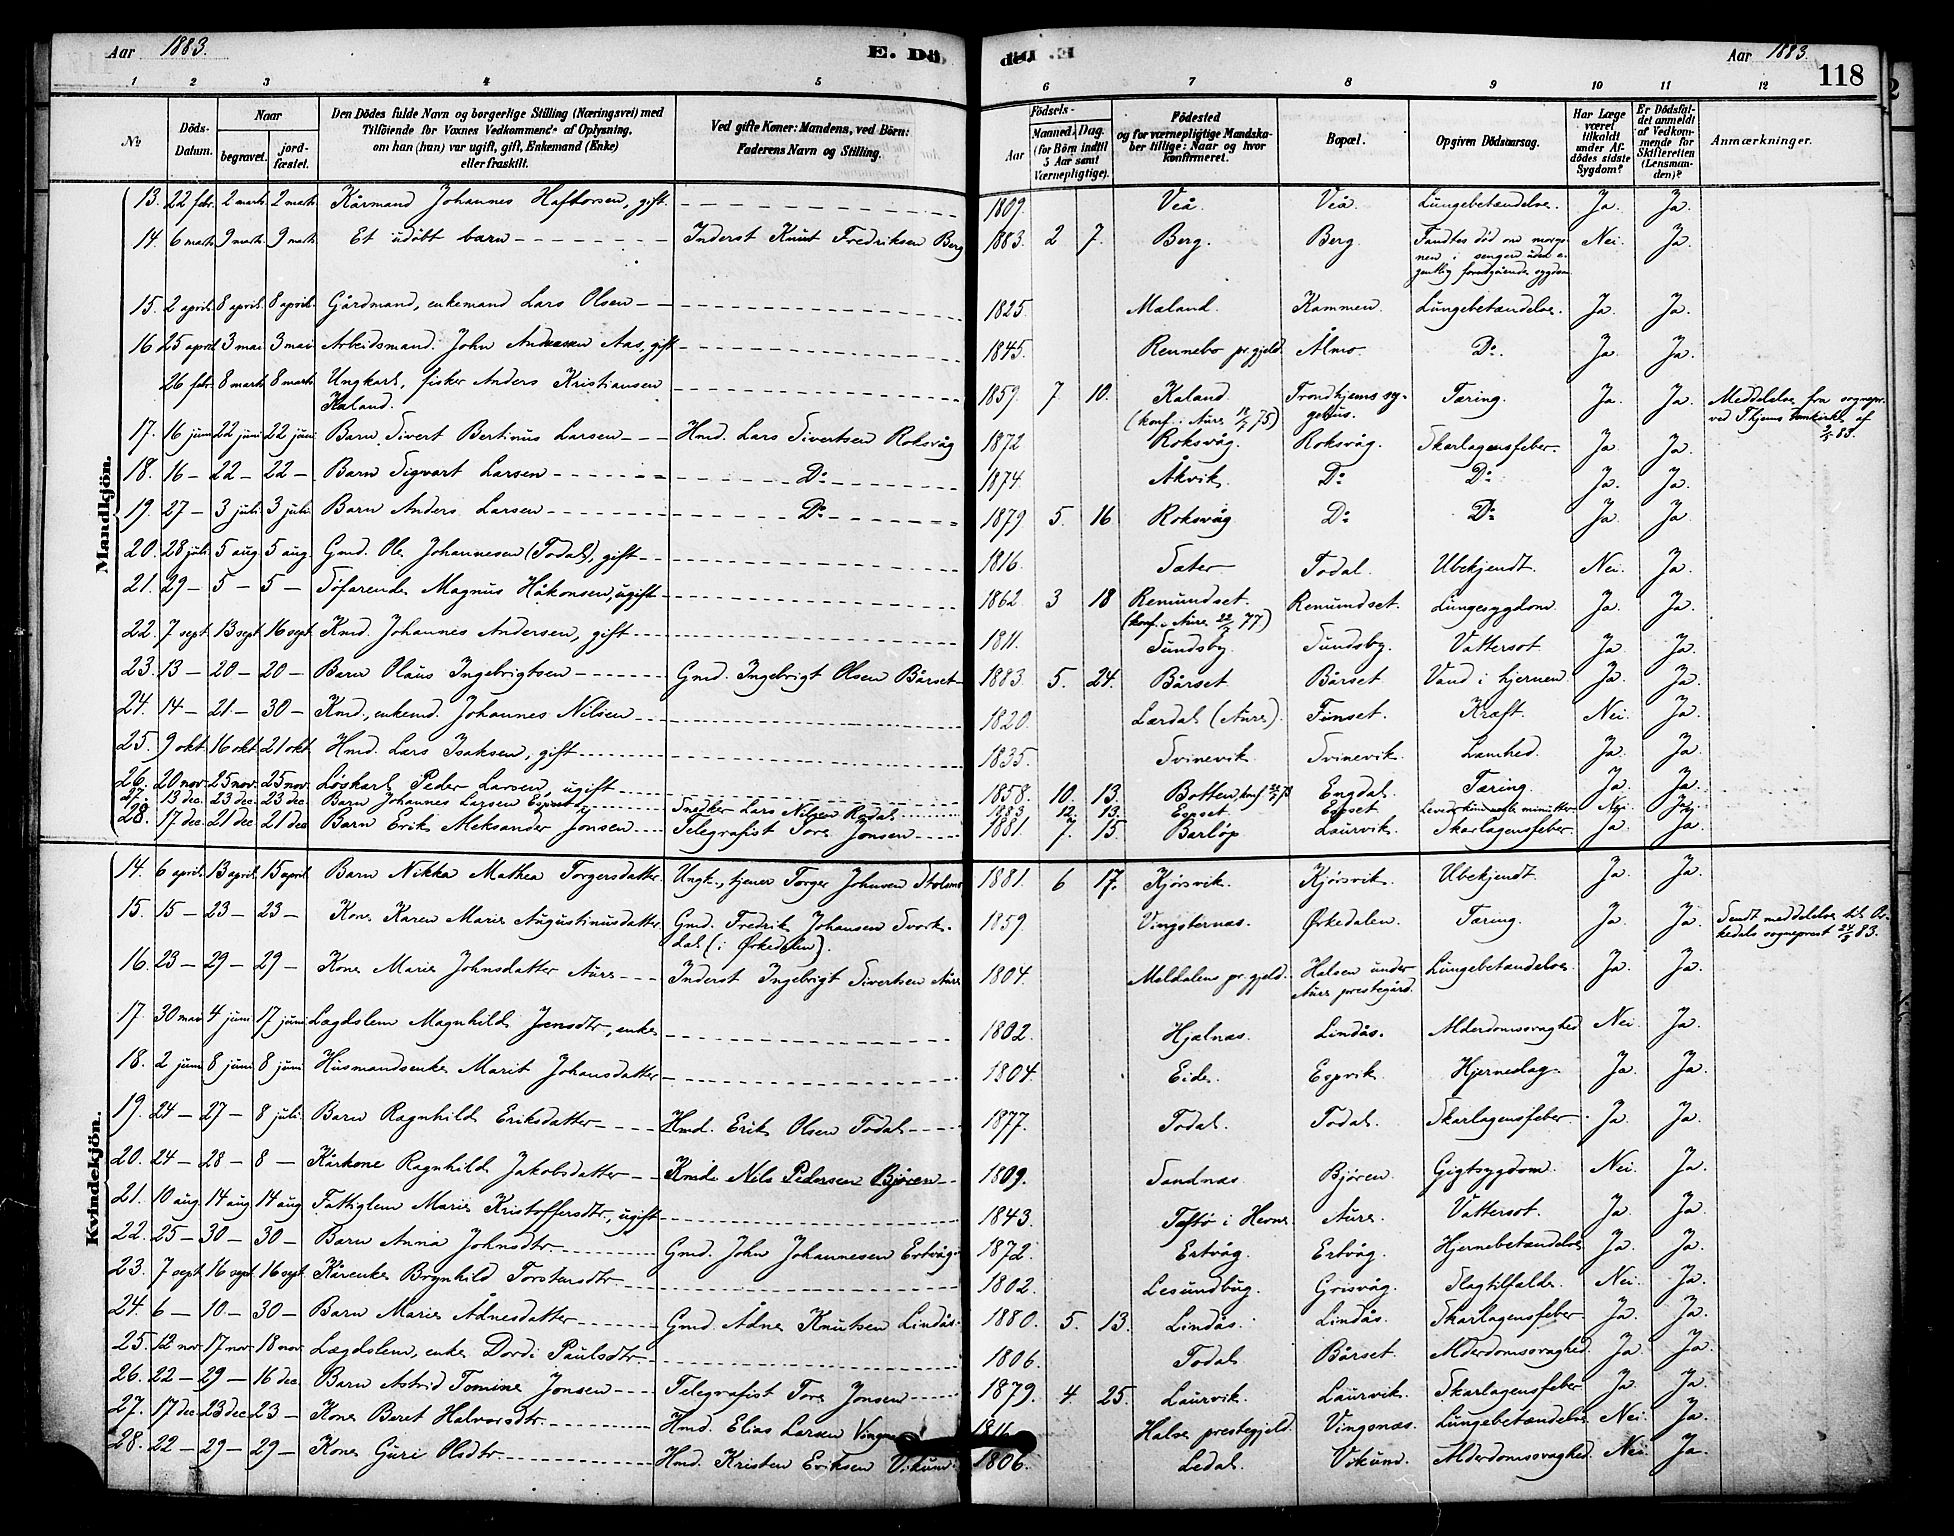 Aar 1883.
E. Dö
E. Död
Aar 1883.
118
1 2 3 4 5 6 7 8 9 10 11 12
No
Döds-Datum.
Naar
begravet.
jord-fæstet.
Den Dödes fulde Navn og borgerlige Stilling (Næringsvei) med
Tilföiende for Voxnes Vedkommende af Oplysning,
om han (hun) var ugift, gift, Enkemand (Enke)
eller fraskilt.
Ved gifte Koner: Mandens, ved Börn:
Faderens Navn og Stilling.
Födsels-
Aar
Maaned. Dag.
(for Börn indtil
5 Aar samt
Værnepligtige).
Födested
og for værnepligtige Mandska-
ber tillige: Naar og hvor
konfirmeret.
Bopæl.
Opgiven Dödsaarsag.
Har Læge
været
tilkaldt
under Af-
dödes sidste
Sygdom?
Er Dödsfal-
det anmeldt
af Vedkom-
mende for
Skifteretten
(Lensman-
den)?
Anmærkninger.
Mandkjön.
13. 22 febr. 2 marts 2 marts Kårmand Johannes Hafthorsen, gift. 1809. Veå. Veå. Lungebetændelse. Ja. Ja.
14. 6 marts 9 marts 9 marts Et udöbt barn Inderst Knut Fredriksen Berg 1883. 2 7. Berg. Berg. Fandtes död om morge-
nen i sengen uden e-
gentlig foregående sygdom Nei. Ja.
15. 2 april. 8 april. 8 april. Gårdmand, enkemand Lars Olsen 1825. Mæland. Kammen. Lungebetændelse. Ja. Ja.
16 25 april 3 mai 3 mai Arbeidsmand John Andersen Aas, gift 1845. Rennebo pr.gjeld. Ålmo. Do. Ja. Ja.
26 febr. 8 marts 8 marts Ungkarl, fisker Anders Kristiansen
Kaland. 1859. 7 10. Kaland Trondhjems sy-
gehus. Tæring. Ja. Ja. Meddelelse fra sognepr.
ved Thjems domkirke af
(konf. i Aure 75)
17. 16 juni 22 juni 22 juni Barn Sivert Bertinus Larsen Hmd. Lars Sivertsen Roksvåg 1872 Roksvåg. Roksvåg. Skarlagensfeber. Ja. Ja.
18. 16 - 22 - 22 - Barn Sigvart Larsen Do 1874. Åkvik. Do Do Ja. Ja.
19. 27 - 3 juli 3 juli. Barn Anders Larsen Do 1879 5. 16 Roksvåg Do Do Ja. Ja.
20. 28 juli 5 aug. 5 aug. Gmd. Ole Johannesen (Todal), gift 1816. Sæter Todal. Ubekjendt. Nei. Ja.
21. 29 - 5 - 5 - Söfarende Magnus Håkonsen, ugift 1862. 3 18 Remundset. Remundset. Lungesygdom. Ja. Ja.
(konf. i Aure 77)
22. 7 sept. 13 sept. 16 sept. Kmd. Johannes Andersen, gift 1811. Sundsby. Sundsby. Vattersot. Ja. Ja.
23. 13 - 20 - 20 - Barn Olaus Ingebrigtsen Gmd. Ingebrigt Olsen Bårset 1883. 5. 24. Bårset. Bårset. Vand i hjernen. Ja. Ja.
24. 14 - 21 - 30 - Kmd., enkemd. Johannes Nilsen 1820. Lærdal (Aure). Finset. Kræft. Nei. Ja.
25. 9 okt. 16 okt. 21 okt. Hmd. Lars Isaksen, gift 1835. Svinevik. Svinevik. Lamhed. Ja. Ja.
26. 20 nov. 25 nov. 25 nov. Löskarl Peder Larsen, ugift 1858. 10. 13. Botten, konf. Engdal. Tæring. Ja. Ja.
27. 13 dec. 23 dec. 23 dec. Barn Johannes Larsen Snedker Lars Nilsen 1883. 12. 13. Espset. Espset. Levede kun minutter Nei. Ja.
28. 17 dec. 21 dec. 21 dec. Barn Erik Aleksander Jonsen Telegrafist Tore Jonsen 1881. 7. 15. Barlöp Laurvik. Skarlagensfeber. Ja. Ja.
Kvindekjön.
14. 6 april. 13 april. 15 april. Barn Nikka Mathea Torgersdatter. Ungk., tjener Torger Johnsen 1881. 6 17. Kjörsvik. Kjörsvik. Ubekjendt. Ja. Ja.
15. 15 - 23 - 23 - Kone Karen Marie Augustinusdatter Gmd. Fredrik Johansen Svork-
dal (i Ørkedalen). 1859. Vingsternæs. Ørkedalen. Tæring. Ja. Ja. Sendt meddelelse til Or-
kedals sogneprest 83.
16. 23 - 29 - 29 - Kone Marie Johnsdatter Aure Inderst Ingebrigt Sivertsen Aure 1804. Meldalens pr.gjeld. Halsen under
Aure prestegård. Lungebetændelse. Ja. Ja.
17. 30 mai 4 juni 17 juni Lægdslem Magnhild Joensdtr., enke 1802. Hjælnæs. Lindås. Alderdomssvaghed. Nei. Ja.
18. 2 juni 8 juni 8 juni Husmandsenke Marit Johansdatter 1804. Eide. Espvik. Hjerneslag. Ja. Ja.
19. 24 - 27 - 8 juli. Barn Ragnhild Eriksdatter Hmd. Erik Olsen Todal 1877. Todal. Todal. Skarlagensfeber. Ja. Ja.
20. 24 - 28 - 8 - Kårkone Ragnhild Jakobsdatter Kmd. Nils Pedersen Björen 1809. Sandnæs. Björen. Gigtsygdom. Nei. Ja.
21. 10 aug. 14 aug. 14 aug. Fattiglem Marie Kristoffersdtr., ugift 1843. Taftö i Hevne. Aure. Vattersot. Ja. Ja.
22. 25 - 30 - 30 - Barn Anna Johnsdtr. Gmd. John Johannesen Ertvåg 1872. Ertvåg. Ertvåg. Hjernebetændelse Ja. Ja.
23. 7 sept. 16 sept. 16 sept. Kårenke Brynhild Torstensdtr. 1802. Lesundbug. Grisvåg. Slagtilfælde. Nei. Ja.
24. 6 - 10 - 30 - Barn Marie Ådnesdatter Gmd. Ådne Knutsen Lindås 1880. 5. 13. Lindås. Lindås. Skarlagensfeber. Ja. Ja.
25. 12 nov. 17 nov. 18 nov. Lægdslem, enke Dordi Paulsdtr. 1806. Todal Bårset. Alderdomssvaghed. Ja. Ja.
26. 22 - 29 - 16 dec. Barn Astrid Tomine Jonsen Telegrafist Tore Jonsen 1879. 4. 25. Laurvik. Laurvik. Skarlagensfeber Ja. Ja.
27. 17 dec. 23 dec. 23 - Kone Beret Halvorsdtr. Hmd. Elias Larsen Halse prestegjeld. Vingsnæs. Lungebetændelse Nei. Ja.
28. 22 - 29 - 29 - Kone Guri Olsdtr. Hmd. Kristen Eriksen Vikum 1806. Ledal. Vikum. Alderdomssvaghed. Nei. Ja.